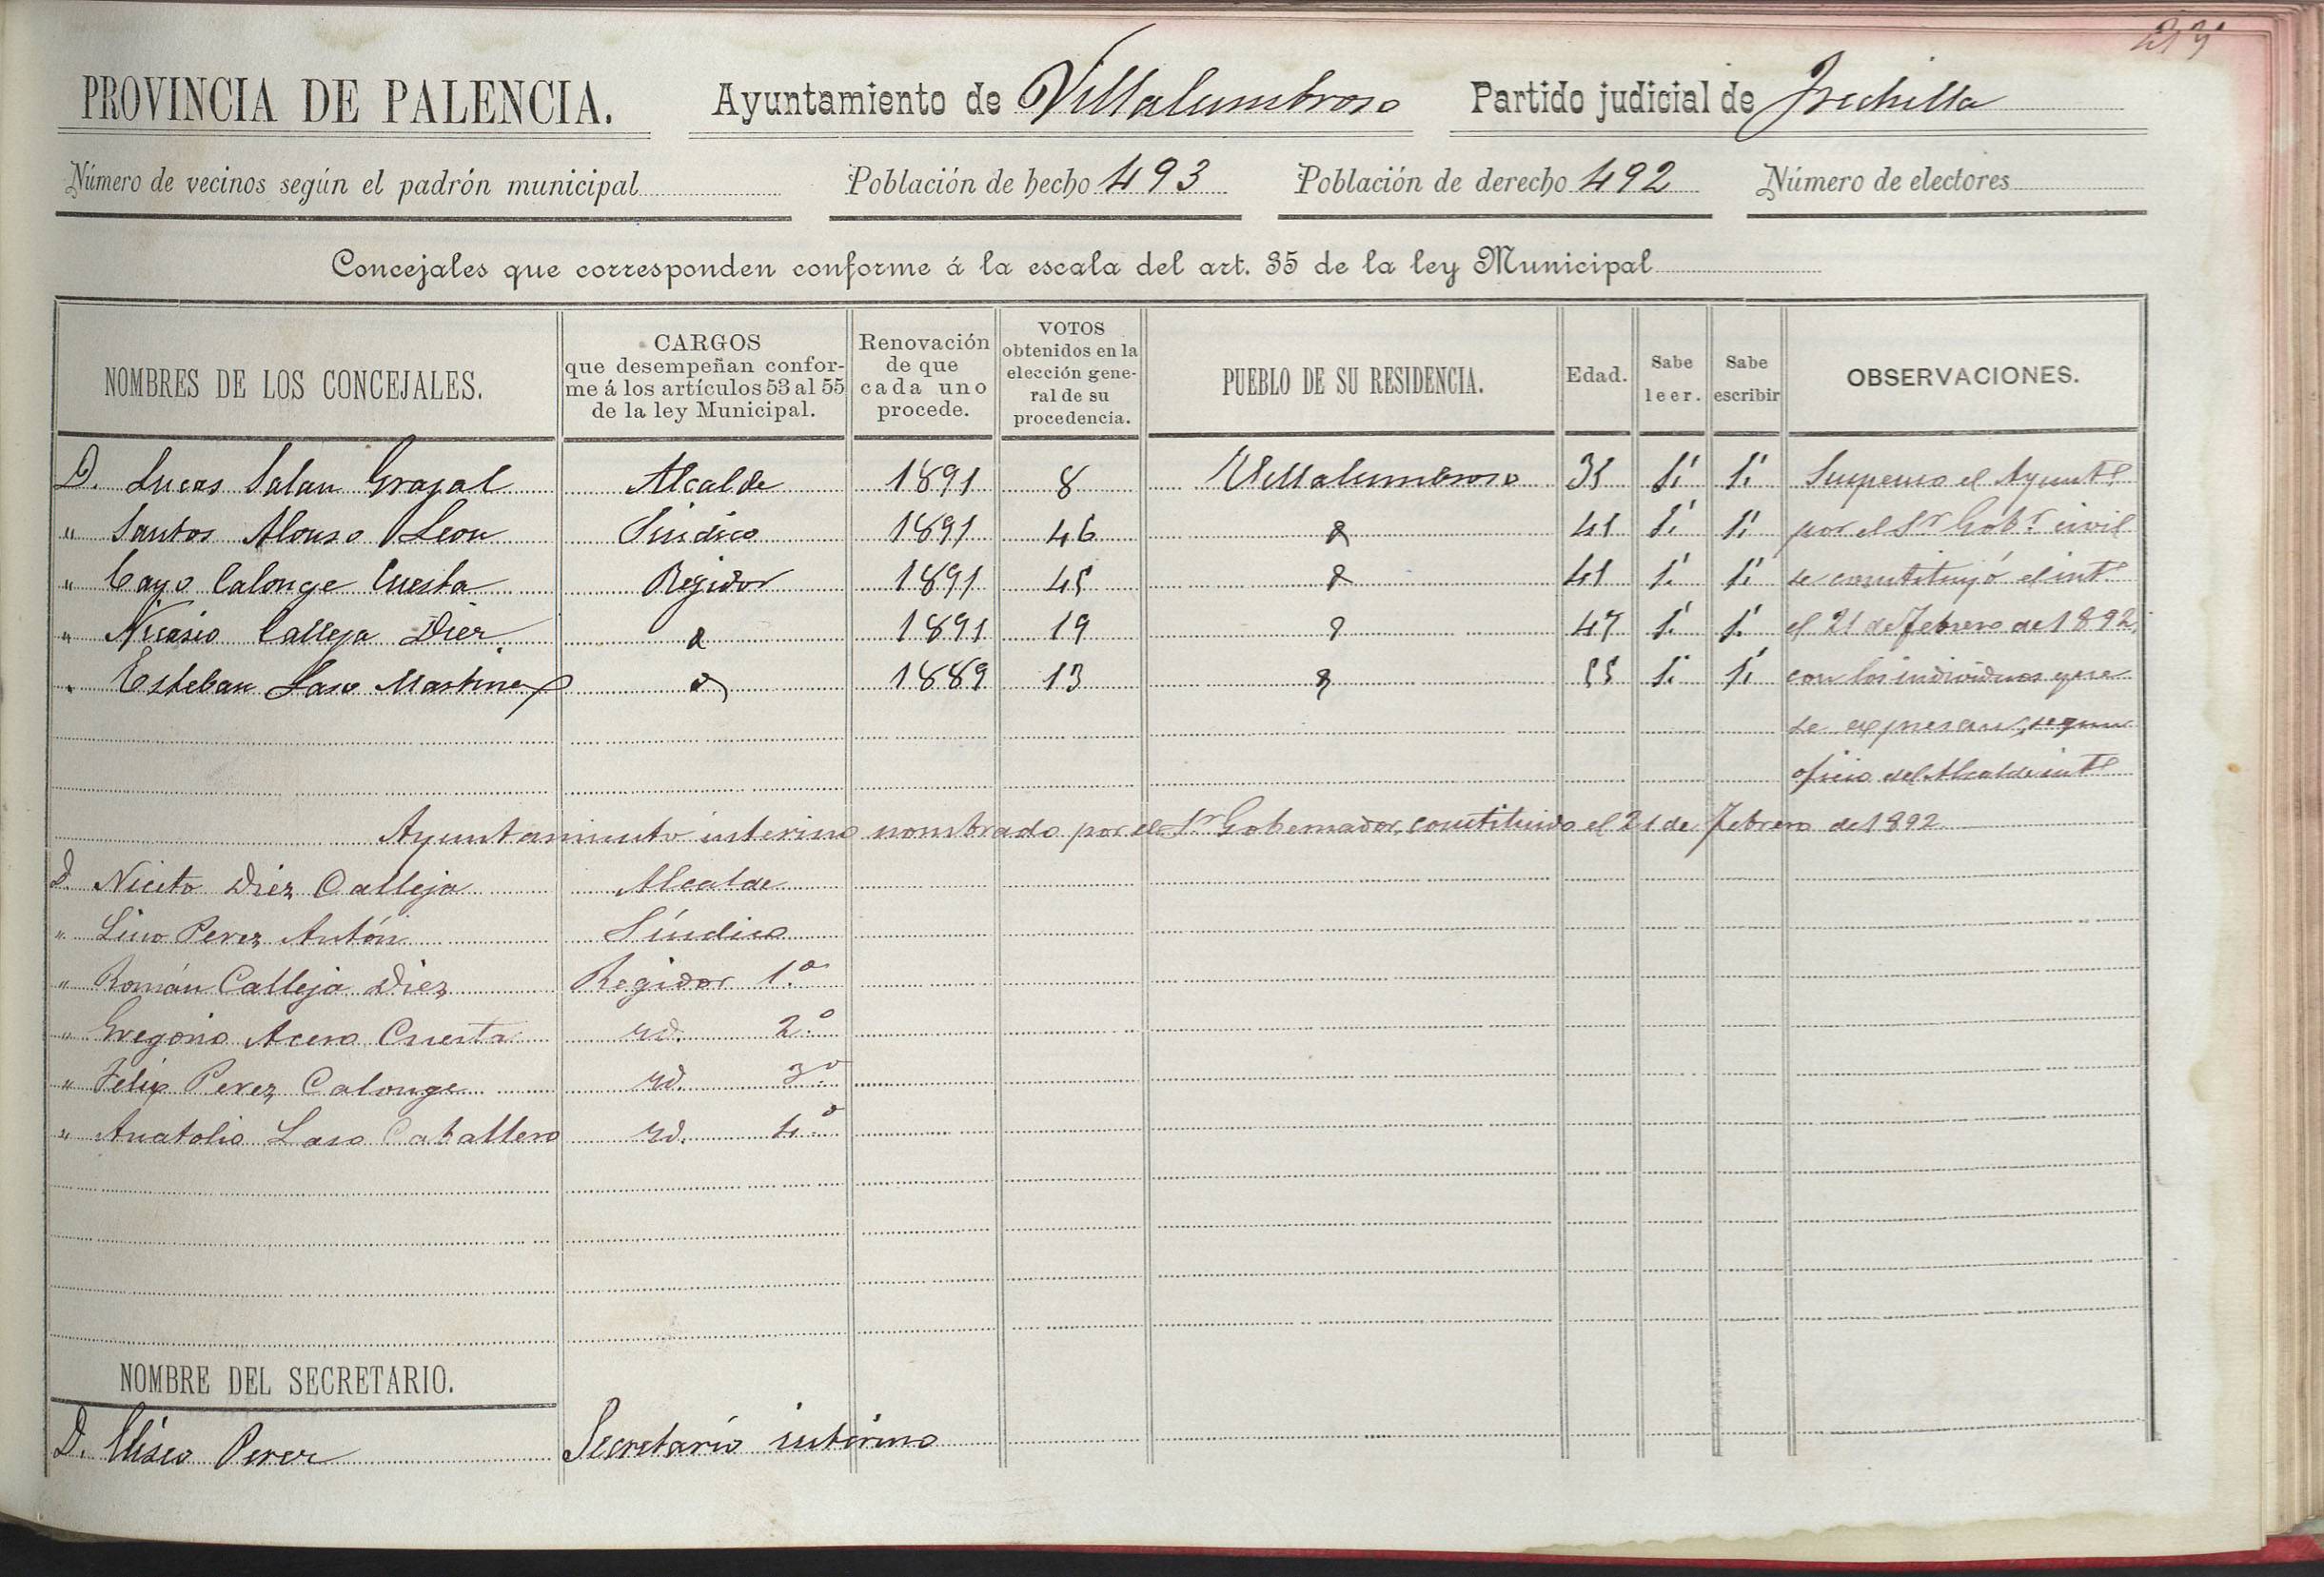 PROVINCIA DE PALENCIA. Ayuntamiento de Villalumbroso Partido judicial de Frechilla
Número de vecinos según el padrón municipal Población de hecho 493 Población de derecho 492 Número de electores
Concejales que corresponden conforme á la escala del art. 35 de la ley Municipal
NOMBRES DE LOS CONCEJALES.
CARGOS
que desempeñan confor-
me á los artículos 53 al 55
de la ley Municipal.
Renovación
de que
cada uno
procede.
VOTOS
obtenidos en la
elección gene-
ral de su
procedencia.
PUEBLO DE SU RESIDENCIA.
Edad.
Sabe
leer.
Sabe
escribir
OBSERVACIONES.
D. Lucas Salan Grajal Alcalde 1891 8 Villalumbroso 35 Sí Sí Suspenso el Ayunto
" Santos Alonso Leon Sindico 1891 46 41 Sí Sí por el Sr Gobr civil
" Cayo Calonge Cuesta Regidor 1891 45 41 Sí Sí se constituyó el into
" Nicasio Calleja Diez 1891 19 47 Sí Sí el 21 de Febrero de 1892,
" Esteban Laso Martinez 1889 13 55 Sí Sí con los individuos que
se expresan, segun
oficio del Alcalde into
Ayuntamiento interino nombrado por el Sr Gobernador, constituido el 21 de Febrero de 1892
D. Niceto Diez Calleja Alcalde
" Lino Perez Antón Síndico
" Román Calleja Diez Regidor 1.º
" Gregorio Acero Cuesta id. 2.º
" Felix Perez Calonge id. 3.º
" Anatolio Laso Caballero id. 4.º
NOMBRE DEL SECRETARIO.
D. Eliseo Perez Secretario interino